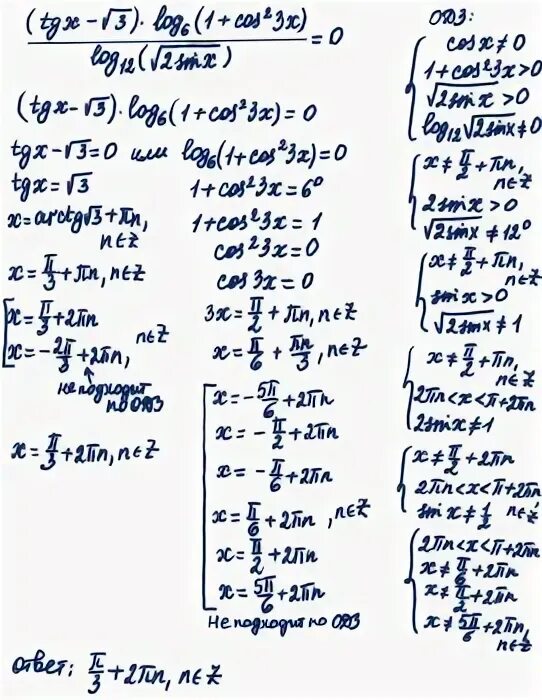 (tgx − √3) · log₆(1 + cos²3x)
────────────────── = 0
log₁₂(√2sinx)
(tgx − √3) · log₆(1 + cos²3x) = 0
tgx − √3 = 0 или log₆(1 + cos²3x) = 0
tgx = √3
x = arctg√3 + πn,
n∈Z
x = π/3 + πn, n∈Z
[ x = π/3 + 2πn
x = −2π/3 + 2πn, n∈Z
не подходит
по ОДЗ
x = π/3 + 2πn, n∈Z
1 + cos²3x = 6⁰
1 + cos²3x = 1
cos²3x = 0
cos3x = 0
3x = π/2 + πn, n∈Z
x = π/6 + πn/3, n∈Z
[ x = −5π/6 + 2πn
x = −π/2 + 2πn
x = −π/6 + 2πn
x = π/6 + 2πn, n∈Z
x = π/2 + 2πn
x = 5π/6 + 2πn
Не подходит по ОДЗ
ОДЗ:
{ cosx ≠ 0
1 + cos²3x > 0
√2sinx > 0
log₁₂√2sinx ≠ 0
{ x ≠ π/2 + πn,
n∈Z
2sinx > 0
√2sinx ≠ 12⁰
{ x ≠ π/2 + πn,
n∈Z
sinx > 0
√2sinx ≠ 1
{ x ≠ π/2 + πn,
n∈Z
2πn < x < π + 2πn
2sinx ≠ 1
{ x ≠ π/2 + 2πn
2πn < x < π + 2πn
sinx ≠ 1/2 n∈Z
{ 2πn < x < π + 2πn
x ≠ π/6 + 2πn
x ≠ π/2 + 2πn
x ≠ 5π/6 + 2πn,
n∈Z
ответ: π/3 + 2πn, n∈Z